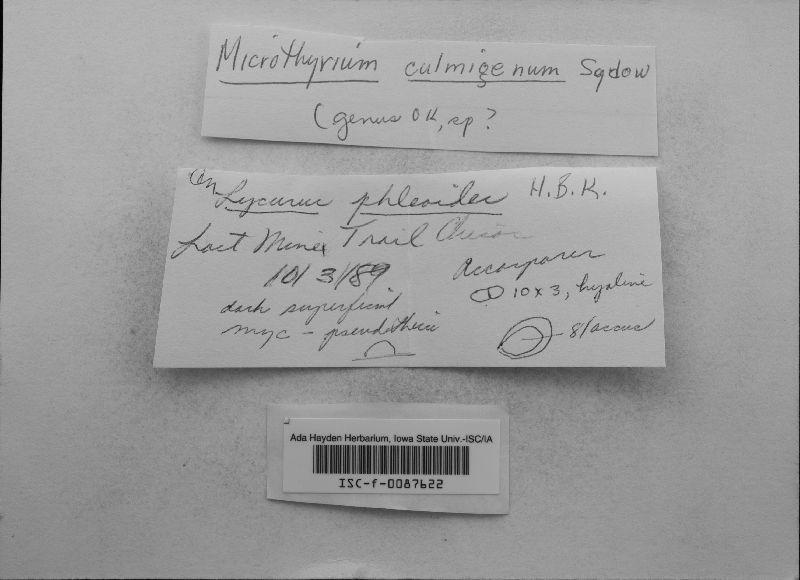 Microthyrium culmigenum Sydow
(genus OK, sp?
On Lycurus phleoides H.B.K.
Lost Mine Trail Chisos
10/3/89
Ascospores
10 x 3, hyaline
dark superficial
myc - pseudothecia
8/ascus
Ada Hayden Herbarium, Iowa State Univ.-ISC/IA
ISC-f-0087622